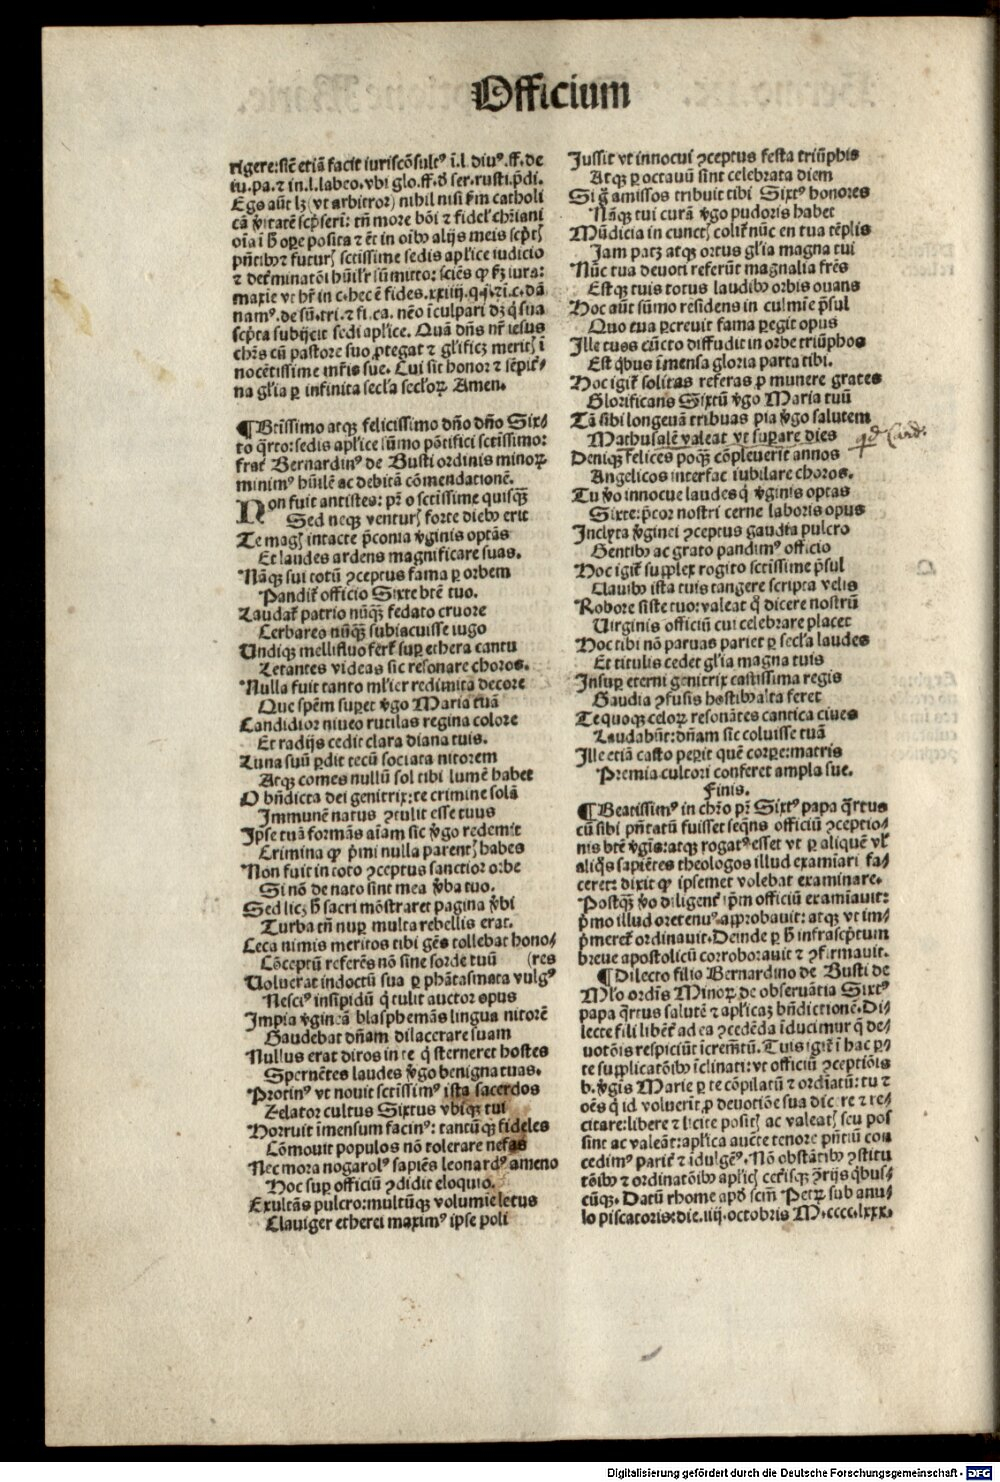 Officium
rigere: sic̄ etiā facit iuriscōsultꝰ ī.l. diuꝰ. ff. de
iu. pa. ⁊ in. l. labeo. vbi glo. ff. ð ser. rusti. p̄di.
Ego aūt lꝫ (vt arbitror) nihil nisi s̄m catholi
cā v̄itatē scp̄seri: tn̄ more bōi ⁊ fidel' chr̄iani
oīa ī h̄ oꝑe posita ⁊ ēt in oībꝰ alijs meis scp̄tꝭ
pn̄tibꝰ ⁊ futurꝭ sctissime sedis aplice iudicio
⁊ det̄minatōi hūilr̄ sūmitto: sciēs ꝙ ẜꝫ iura:
maxie vt hr̄ in c. hec ē fides. xxiiij. q. j. ⁊ ī. c. dā
namꝰ. de sū. tri. ⁊ fi. ca. nēo īculpari dꝫ q̄ sua
scp̄ta subijcit sedi aplice. Quā dn̄s nr̄ iesus
chr̄s cū pastore suo ꝓtegat ⁊ gl'ificꝫ meritꝭ ī
nocētissime mr̄is sue. Cui sit honor ⁊ sēpit̄-
na gl'ia ꝑ infinita secl'a seclo℞. Amen.
¶ Btīssimo atqꝫ felicissimo dn̄o dn̄o Six-
to q̄rto: sedis aplice sūmo pōtifici sctissimo:
frat̄ Bernardinꝰ de Busti ordinis mino℞
minimꝰ hūilē ac debitā cōmendationē.
Non fuit antistes: pr̄ o sctissime quisqꝫ̄
Sed neqꝫ venturꝭ forte diebꝰ erit
Te magꝭ intacte p̄conia v̄ginis optās
Et laudes ardens magnificare suas.
Nāqꝫ sui totū ꝯceptus fama ꝑ orbem
Pandit̄ officio Sixte btē tuo.
Laudat̄ patrio nūqꝫ̄ fedato cruore
Cerbareo nūqꝫ̄ subiacuisse iugo
Undiqꝫ mellifluo fert̄ suꝑ ethera cantu
Letantes videas sic resonare choros.
Nulla fuit tanto ml'ier redimita decore
Que spēm suꝑet v̄go Maria tuā
Candidior niueo rutilas regina colore
Et radijs cedit clara diana tuis.
Luna suū ꝑdit tecū sociata nitorem
Atqꝫ comes nullū sol tibi lumē habet
O bn̄dicta dei genitrix: te crimine solā
Immunē natus ꝯtulit esse tuus
Ipse tuā formās aīam sic v̄go redemit
Crimina ꝙ p̄mi nulla parentꝭ habes
Non fuit in toto ꝯceptus sanctior orbe
Si nō de nato sint mea v̄ba tuo.
Sed licꝫ h̄ sacri mōstraret pagina v̄bi
Turba tn̄ nuꝑ multa rebellis erat.
Ceca nimis meritos tibi gēs tollebat hono-
Cōceptū referēs nō sine sorde tuū (res
Voluerat indoctū sua ꝑ phātasmata vulgꝰ
Nesciꝰ insipidū q̄ tulit auctor opus
Impia v̄gineā blasphemās lingua nitorē
Gaudebat dn̄am dilacerare suam
Nullus erat diros in te q̄ sterneret hostes
Spernētes laudes v̄go benigna tuas.
Protinꝰ vt nouit sctissimꝰ ista sacerdos
Zelator cultus Sixtus vbiqꝫ tui
Horruit īmensum facinꝰ: tantūqꝫ fideles
Cōmouit populos nō tolerare nefas
Nec mora nogarolꝰ sapiēs leonardꝰ ameno
Hoc suꝑ officiū ꝯdidit eloquio.
Exultās pulcro: multūqꝫ volumīe letus
Clauiger etherei maximꝰ ipse poli
Jussit vt innocui ꝯceptus festa triūphis
Atqꝫ ꝑ octauū sint celebrata diem
Si q̄ amissos tribuit tibi Sixtꝰ honores
Nāqꝫ tui curā v̄go pudoris habet
Mūdicia in cunctꝭ colit̄ nūc en tua tēplis
Jam patꝫ atqꝫ ortus gl'ia magna tui
Nūc tua deuoti referūt magnalia fr̄es
Estqꝫ tuis totus laudibꝰ orbis ouans
Hoc aūt sūmo residens in culmīe p̄sul
Quo tua ꝑcreuit fama ꝑegit opus
Ille tuos cūcto diffudit in orbe triūphos
Est q̄bus īmensa gloria parta tibi.
Hoc igit̄ solitas referas ꝓ munere grates
Glorificans Sixtū v̄go Maria tuū
Tā sibi longeuā tribuas pia v̄go salutem
Mathusalē valeat vt suꝑare dies
Deniqꝫ felices posqꝫ̄ cōpleuerit annos
Angelicos interfac iubilare choros.
Tu v̄o innocue laudes q̄ v̄ginis optas
Sixte: p̄cor nostri cerne laboris opus
Inclyta v̄ginei ꝯceptus gaudia pulcro
Gentibꝰ ac grato pandimꝰ officio
Hoc igit̄ supplex rogito sctissime p̄sul
Clauibꝰ ista tuis tangere scripta velis
Robore siste tuo: valeat q̄ dicere nostrū
Virginis officiū cui celebrare placet
Hoc tibi nō paruas pariet ꝑ secl'a laudes
Et titulis cedet gl'ia magna tuis
Insuꝑ eterni genitrix castissima regis
Gaudia ꝯfusis hostibꝰ alta feret
Te quoqꝫ celo℞ resonātes cantica ciues
Laudabūt: dn̄am sic coluisse tuā
Ille etiā casto peꝑit quē corꝑe: matris
Premia cultori conferet ampla sue.
Finis.
¶ Beatissimꝰ in chr̄o pr̄ Sixtꝰ papa q̄rtus
cū sibi pn̄tatū fuisset seq̄ns officiū ꝯceptio-
nis btē v̄gīs: atqꝫ rogatꝰ esset vt ꝑ aliquē vl'
aliq̄s sapiētes theologos illud examīari fa-
ceret: dixit ꝙ ipsemet volebat examinare.
Postqꝫ v̄o diligent̄ ip̄m officiū examīauit:
p̄mo illud oretenꝰ approbauit: atqꝫ vt im-
p̄meret̄ ordinauit. Deinde ꝑ h̄ infrascp̄tum
breue apostolicū corroborauit ⁊ ꝯfirmauit.
¶ Dilecto filio Bernardino de Busti de
Ml'o ordīs Mino℞ de obseruātia Sixtꝰ
papa q̄rtus salutē ⁊ aplicaꝫ bn̄dictionē. Di-
lecte fili libēt̄ ad ea ꝯcedēda īducimur q̄ de-
uotōis respiciūt īcremētū. Tuis igit̄ ī hac ꝑ-
te supplicatōibꝰ īclinati: vt officiū ꝯceptiōis
b. v̄gīs Marie ꝑ te cōpilatū ⁊ ordīatū: tu ⁊
oēs q̄ id voluerīt ꝓ deuotiōe sua dicere ⁊ re-
citare: libere ⁊ licite positꝭ ac valeatꝭ seu pos
sint ac valeāt: aplica auc̄te tenore pn̄tiū con
cedimꝰ parit̄ ⁊ īdulgēꝰ. Nō obstātibꝰ ꝯstitu
tōibꝰ ⁊ ordinatōibꝰ aplicꝭ cet̄isqꝫ ꝯr̄ijs q̄bus-
cūqꝫ. Datū rhome apd̄ scm̄ Petꝝ sub anu-
lo piscatoris: die. iiij. octobris M.cccc.lxxx.
Digitalisierung gefördert durch die Deutsche Forschungsgemeinschaft - DFG